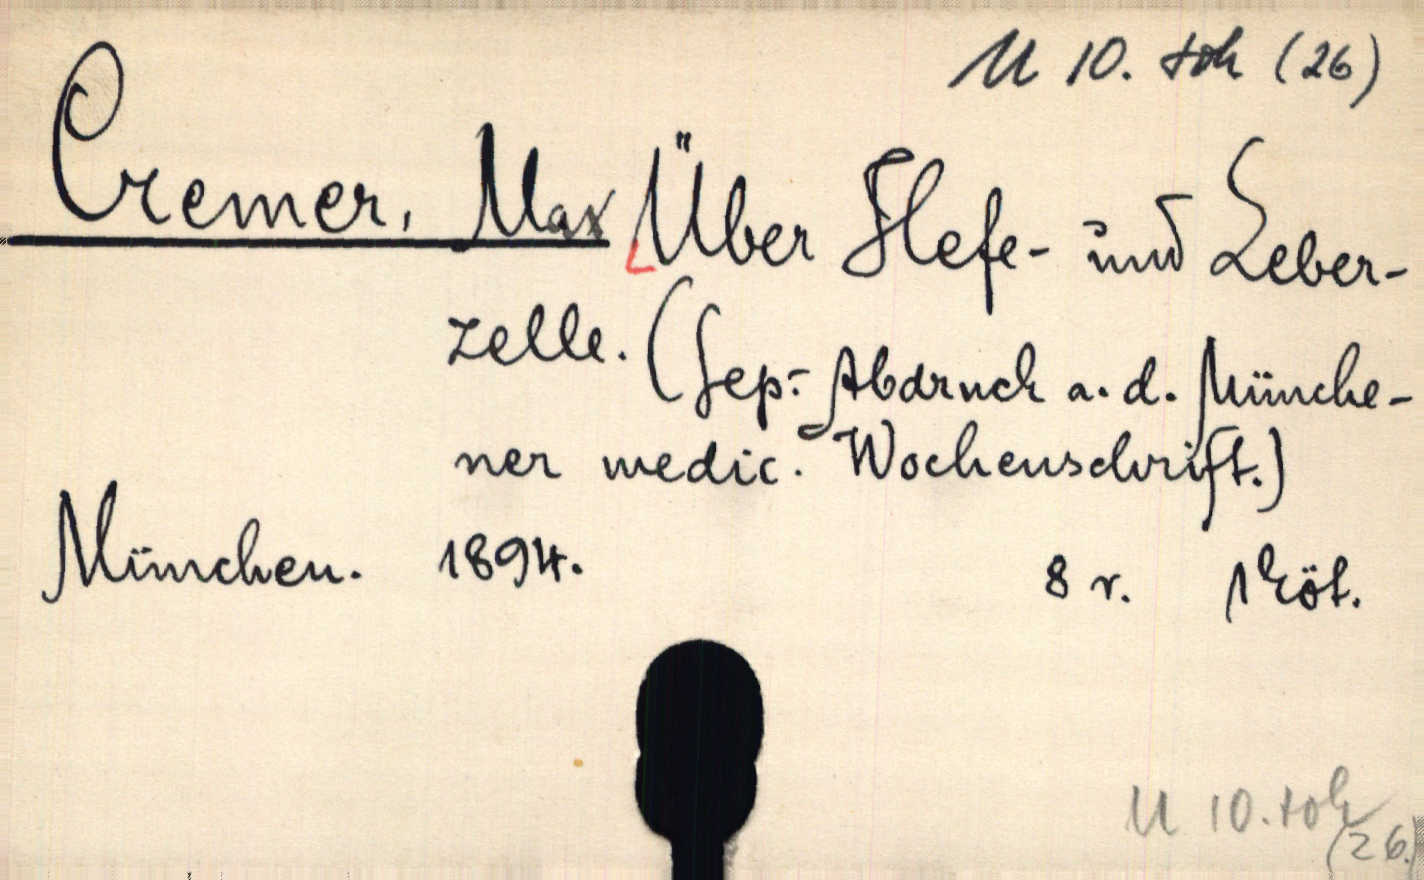 U 10. tok (26)
Cremer, Max Über Hefe- und Leber-
zelle. (Sep.-Abdruck a. d. Münche-
ner medic. Wochenschrift.)
München. 1894. 8 r. 1 köt.
U 10. tok
(26.)